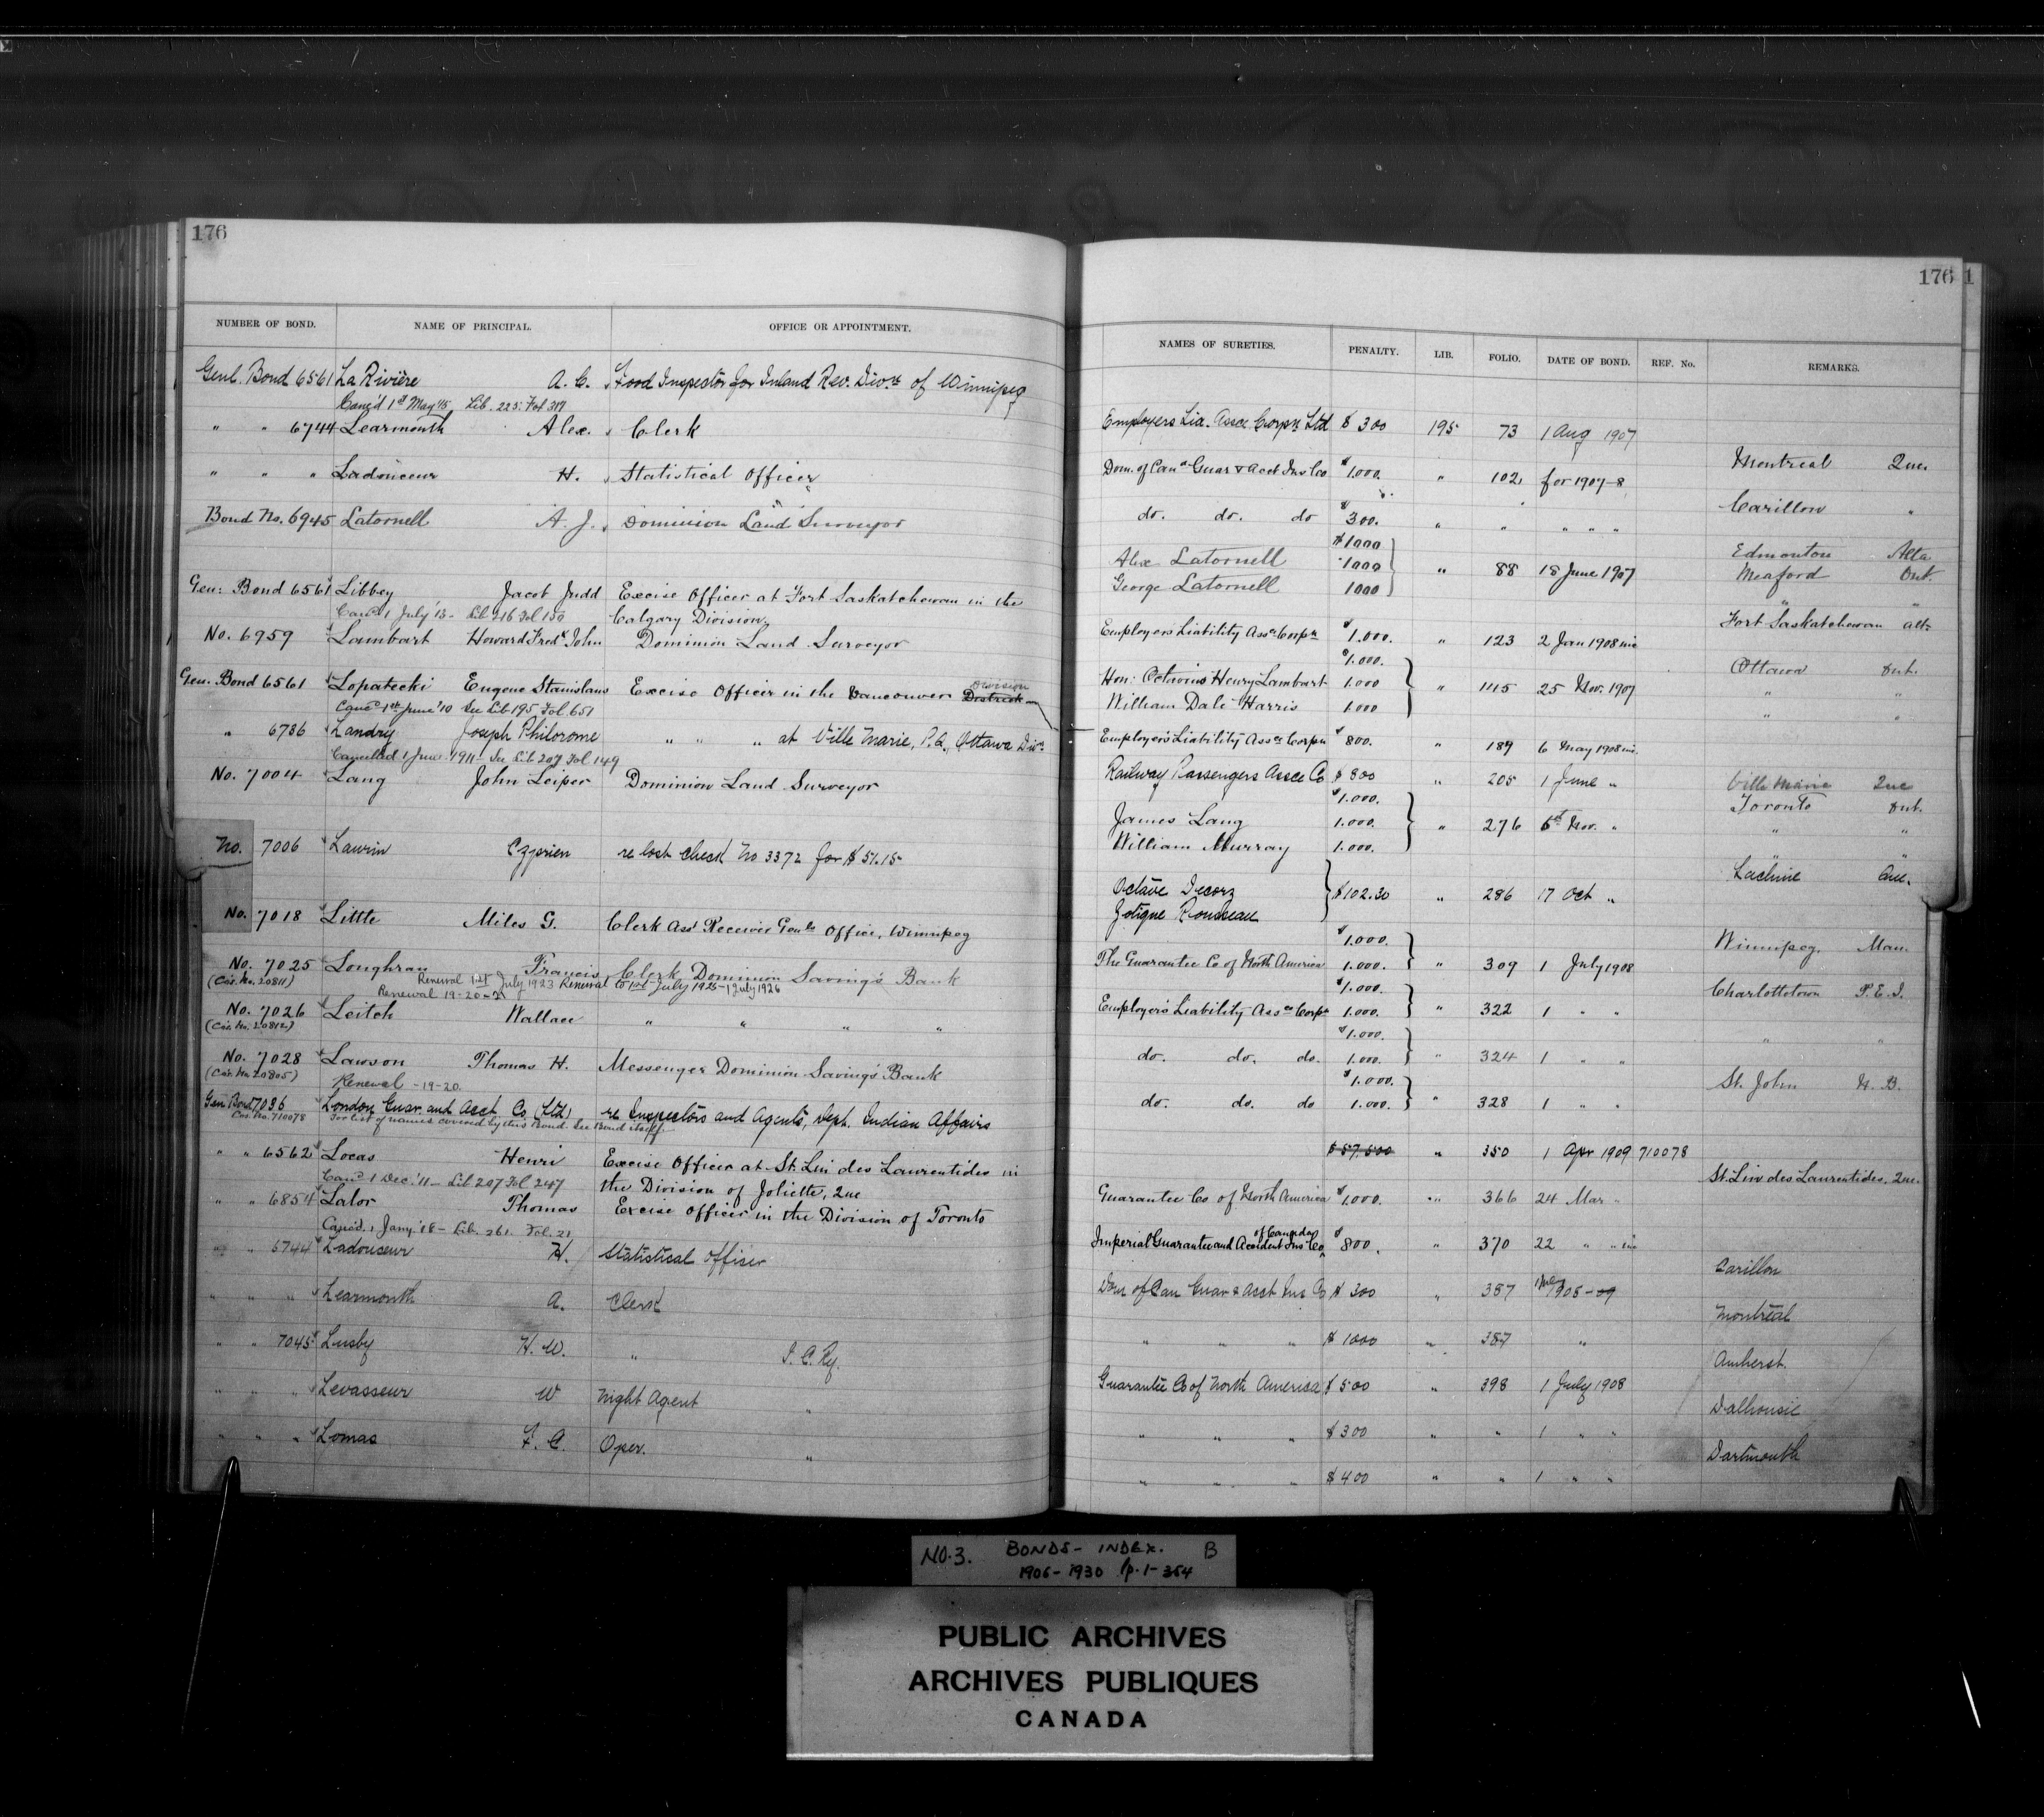 176
NUMBER OF BOND. NAME OF PRINCIPAL. OFFICE OR APPOINTMENT.
Genl. Bond 6561 La Rivière A. C. Food Inspector for Inland Rev. Divn of Winnipeg
Canc'd 1st May '15 Lib. 225. Fol. 317
" " 6744 Learmonth Alex. Clerk
" " " Ladouceur H. Statistical Officer
Bond No. 6945 Latornell A. J. Dominion Land Surveyor
Gen: Bond 6561 Libbey Jacob Judd Excise Officer at Fort Saskatchewan in the
Canc'd 1 July '13 - Lib 216 Fol 159 Calgary Division
No. 6959 Lambart Howard Fredk John Dominion Land Surveyor
Gen. Bond 6561 Lopatecki Eugene Stanislaus Excise Officer in the Vancouver District Division
Canc'd 1st June '10 See Lib 195 Fol. 651
" 6736 Landry Joseph Philorome " " " at Ville Marie, P.Q., Ottawa Divn
Cancelled 1 June 1911 - See Lib 207 Fol 149
No. 7004 Lang John Leiper Dominion Land Surveyor
No. 7006 Laurin Czprien re lost check No 3372 for $51.15
No. 7018 Little Miles G. Clerk Asst Receiver Genls Office, Winnipeg
No. 7025 Loughran Francis Clerk, Dominion Savings Bank
(Cas. No. 20811) Renewal 1st July 1923 Renewal to 1st July 1925 - 1 July 1926
Renewal 19-20-21
No. 7026 Leitch Wallace " " " "
(Cas. No. 20812)
No. 7028 Lawson Thomas H. Messenger Dominion Savings Bank
(Cas. No. 20805) Renewal - 19-20.
Gen Bond 7036 London Guar. and Acct. Co. (Ltd) re Inspectors and Agents, Dept. Indian Affairs
Cas. No. 710078 For list of names covered by this Bond. See Bond itself.
" " 6562 Locas Henri Excise Officer at St. Lin des Laurentides in
Canc'd 1 Dec. '11 - Lib 207 Fol 247 the Division of Joliette, Que
" " 6854 Lalor Thomas Excise Officer in the Division of Toronto
Canc'd. 1 Jany. '18 - Lib. 261. Fol. 21
" " 6744 Ladouseur H. Statistical Officer
" " " Learmonth A. Clerk
" " 7045 Lusby H. W. " I. C. Ry.
" " " Levasseur W Night Agent "
" " " Lomas F. C. Oper. "
176 1
NAMES OF SURETIES. PENALTY. LIB. FOLIO. DATE OF BOND. REF. No. REMARKS.
Employers Lia. Assce Corpn Ltd $300 195 73 1 Aug 1907
Dom. of Cana Guar & Acct Ins Co $1000. " 102 for 1907-8 Montreal Que.
do. do. do $300. " " " " " Carillon "
$1000 Edmonton Alta
Alex Latornell 1000 " 88 18 June 1907 Meaford Ont.
George Latornell 1000 " "
Employers Liability Assce Corpn $1,000. " 123 2 Jan 1908 Fort Saskatchewan Alta
$1.000. Ottawa Ont.
Hon: Octavius Henry Lambart 1.000 " 145 25 Nov. 1907 " "
William Dale Harris 1.000 " "
Employer's Liability Assce Corpn $800. " 189 6 May 1908
Railway Passengers Assce Co $800 " 205 1 June " Ville Marie Que
$1.000. Toronto Ont.
James Lang 1.000. " 276 6th Nov. " " "
William Murray 1.000. " "
Octave Decorz $102.30 " 286 17 Oct " Lachine Que.
Zotique Rousseau
$1.000. Winnipeg. Man.
The Guarantee Co of North America 1.000. " 309 1 July 1908
$1.000. Charlottetown P.E.I.
Employer's Liability Assce Corpn 1.000. " 322 1 " "
$1.000. " "
do. do. do. 1.000. " 324 1 " "
$1.000. St. John N. B.
do. do. do 1.000. " 328 1 " "
$57.500 " 350 1 Apr 1909 710078
Guarantee Co of North America $1,000. " 366 24 Mar " St. Lin des Laurentides. Que.
Imperial Guarantee and Accident Ins Co of Canada $800. " 370 22 " "
Dom of Can Guar & Acct Ins Co $300 " 387 1908-09 Carillon
" " " $1000 " 387 " Montreal
Guarantee Co of North America $500 " 398 1 July 1908 Amherst.
" " " $300 " " 1 " " Dalhousie
" " " $400 " " 1 " " Dartmouth
NO. 3. BONDS - INDEX. B
1906-1930 p. 1-354
PUBLIC ARCHIVES
ARCHIVES PUBLIQUES
CANADA